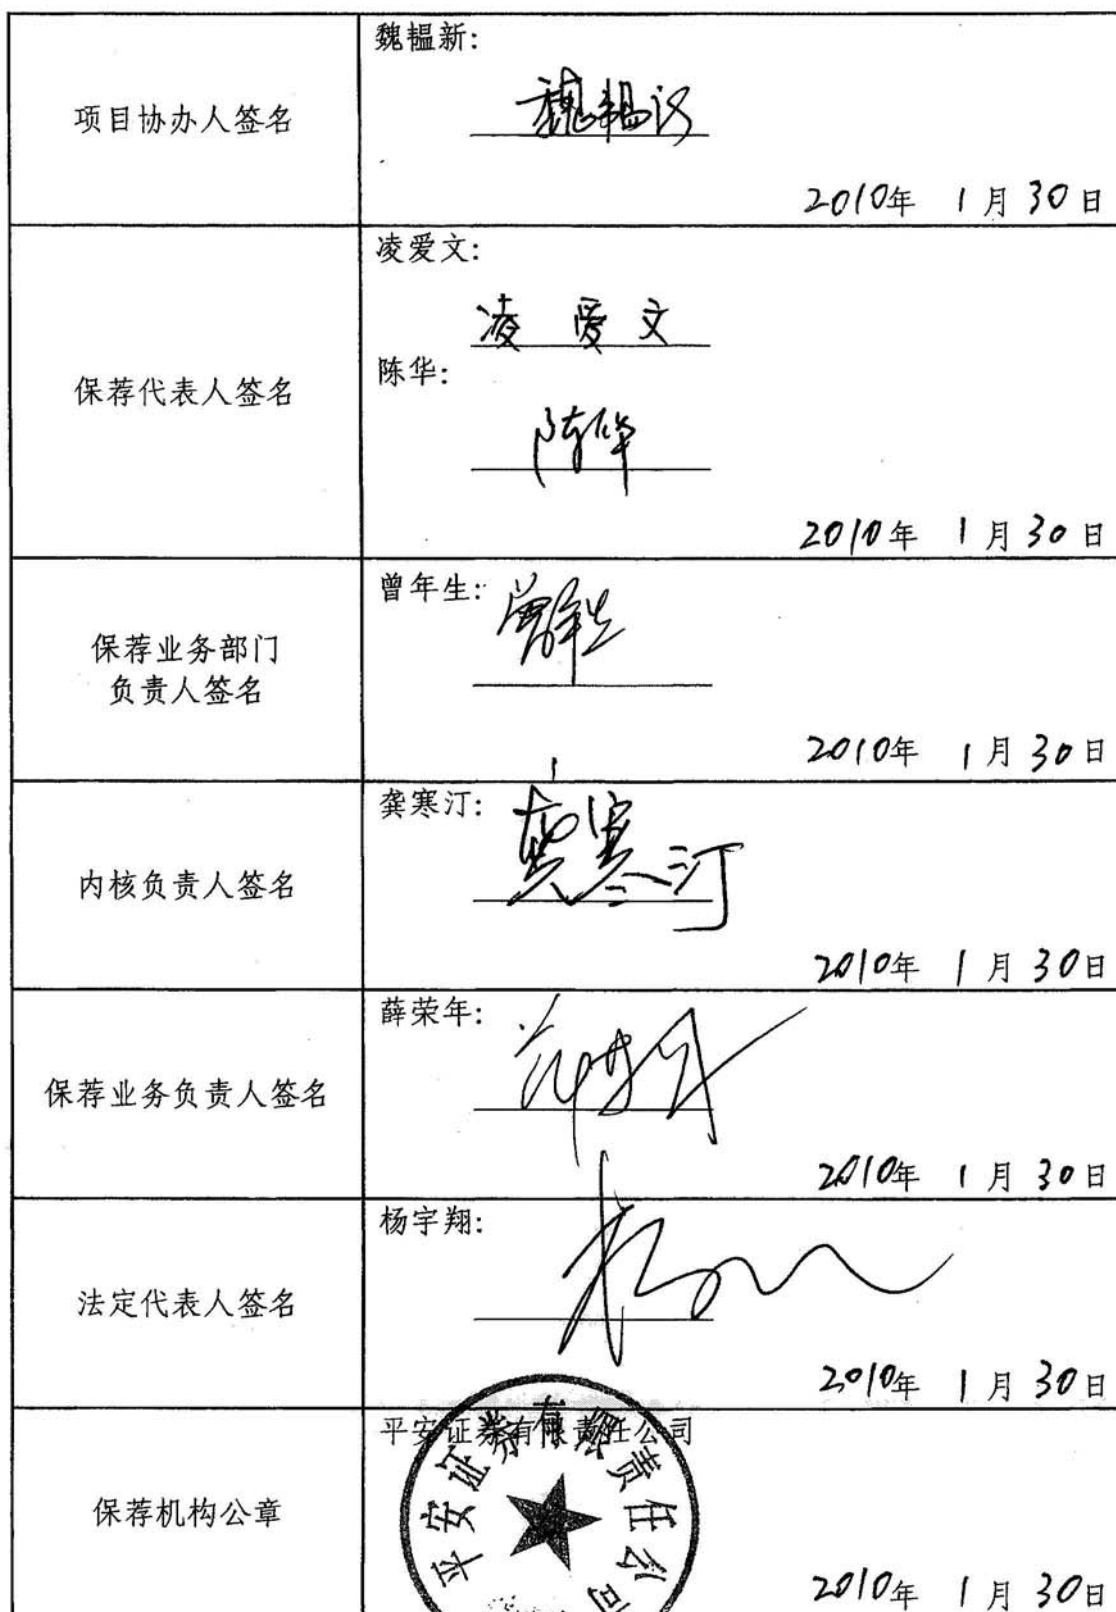 项目协办人签名
魏韫新：
魏韫新
2010年 1月30日
保荐代表人签名
凌爱文：
凌爱文
陈华：
陈华
2010年 1月30日
保荐业务部门
负责人签名
曾年生：
曾年生
2010年 1月30日
内核负责人签名
龚寒汀：
龚寒汀
2010年 1月30日
保荐业务负责人签名
薛荣年：
薛荣年
2010年 1月30日
法定代表人签名
杨宇翔：
2010年 1月30日
保荐机构公章
平安证券有限责任公司
平安证券有限责任公司
2010年 1月30日